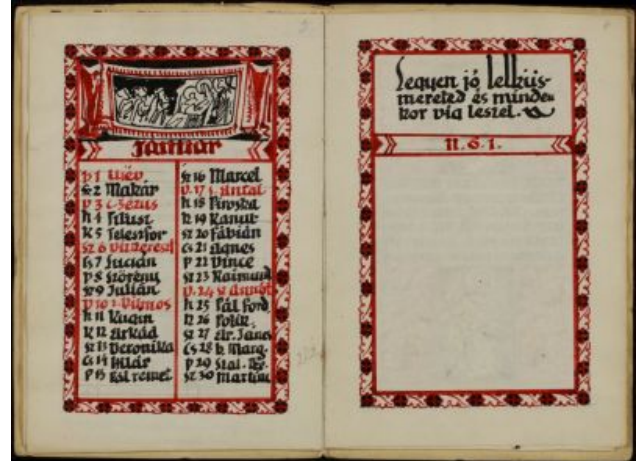 Január
p 1 Újév
sz 2 Makár
v. 3 c. Jézus
h 4 Titusz
k 5 Teleszfor
sz 6 Vízkereszt
cs 7 Lucián
p 8 Szörény
sz 9 Julián
v 10 1. Vilmos
h 11 Higin
k 12 Arkád
sz 13 Veronika
cs 14 Hilár
p 15 remet.
sz 16 Marcel
v. 17 Antal
h 18 Piroska
k 19 Kanut
sz 20 Fábián
cs 21 Agnes
p 22 Vince
sz 23 Raimund
v. 24
h 25 Pál ford.
k 26 Polik.
sz 27 Ar. János
cs 28 Marg.
p 29 Szal.
sz 30 Martina
Legyen jó lelkiis-
mereted és minden-
kor víg leszel.
II. 6. 1.